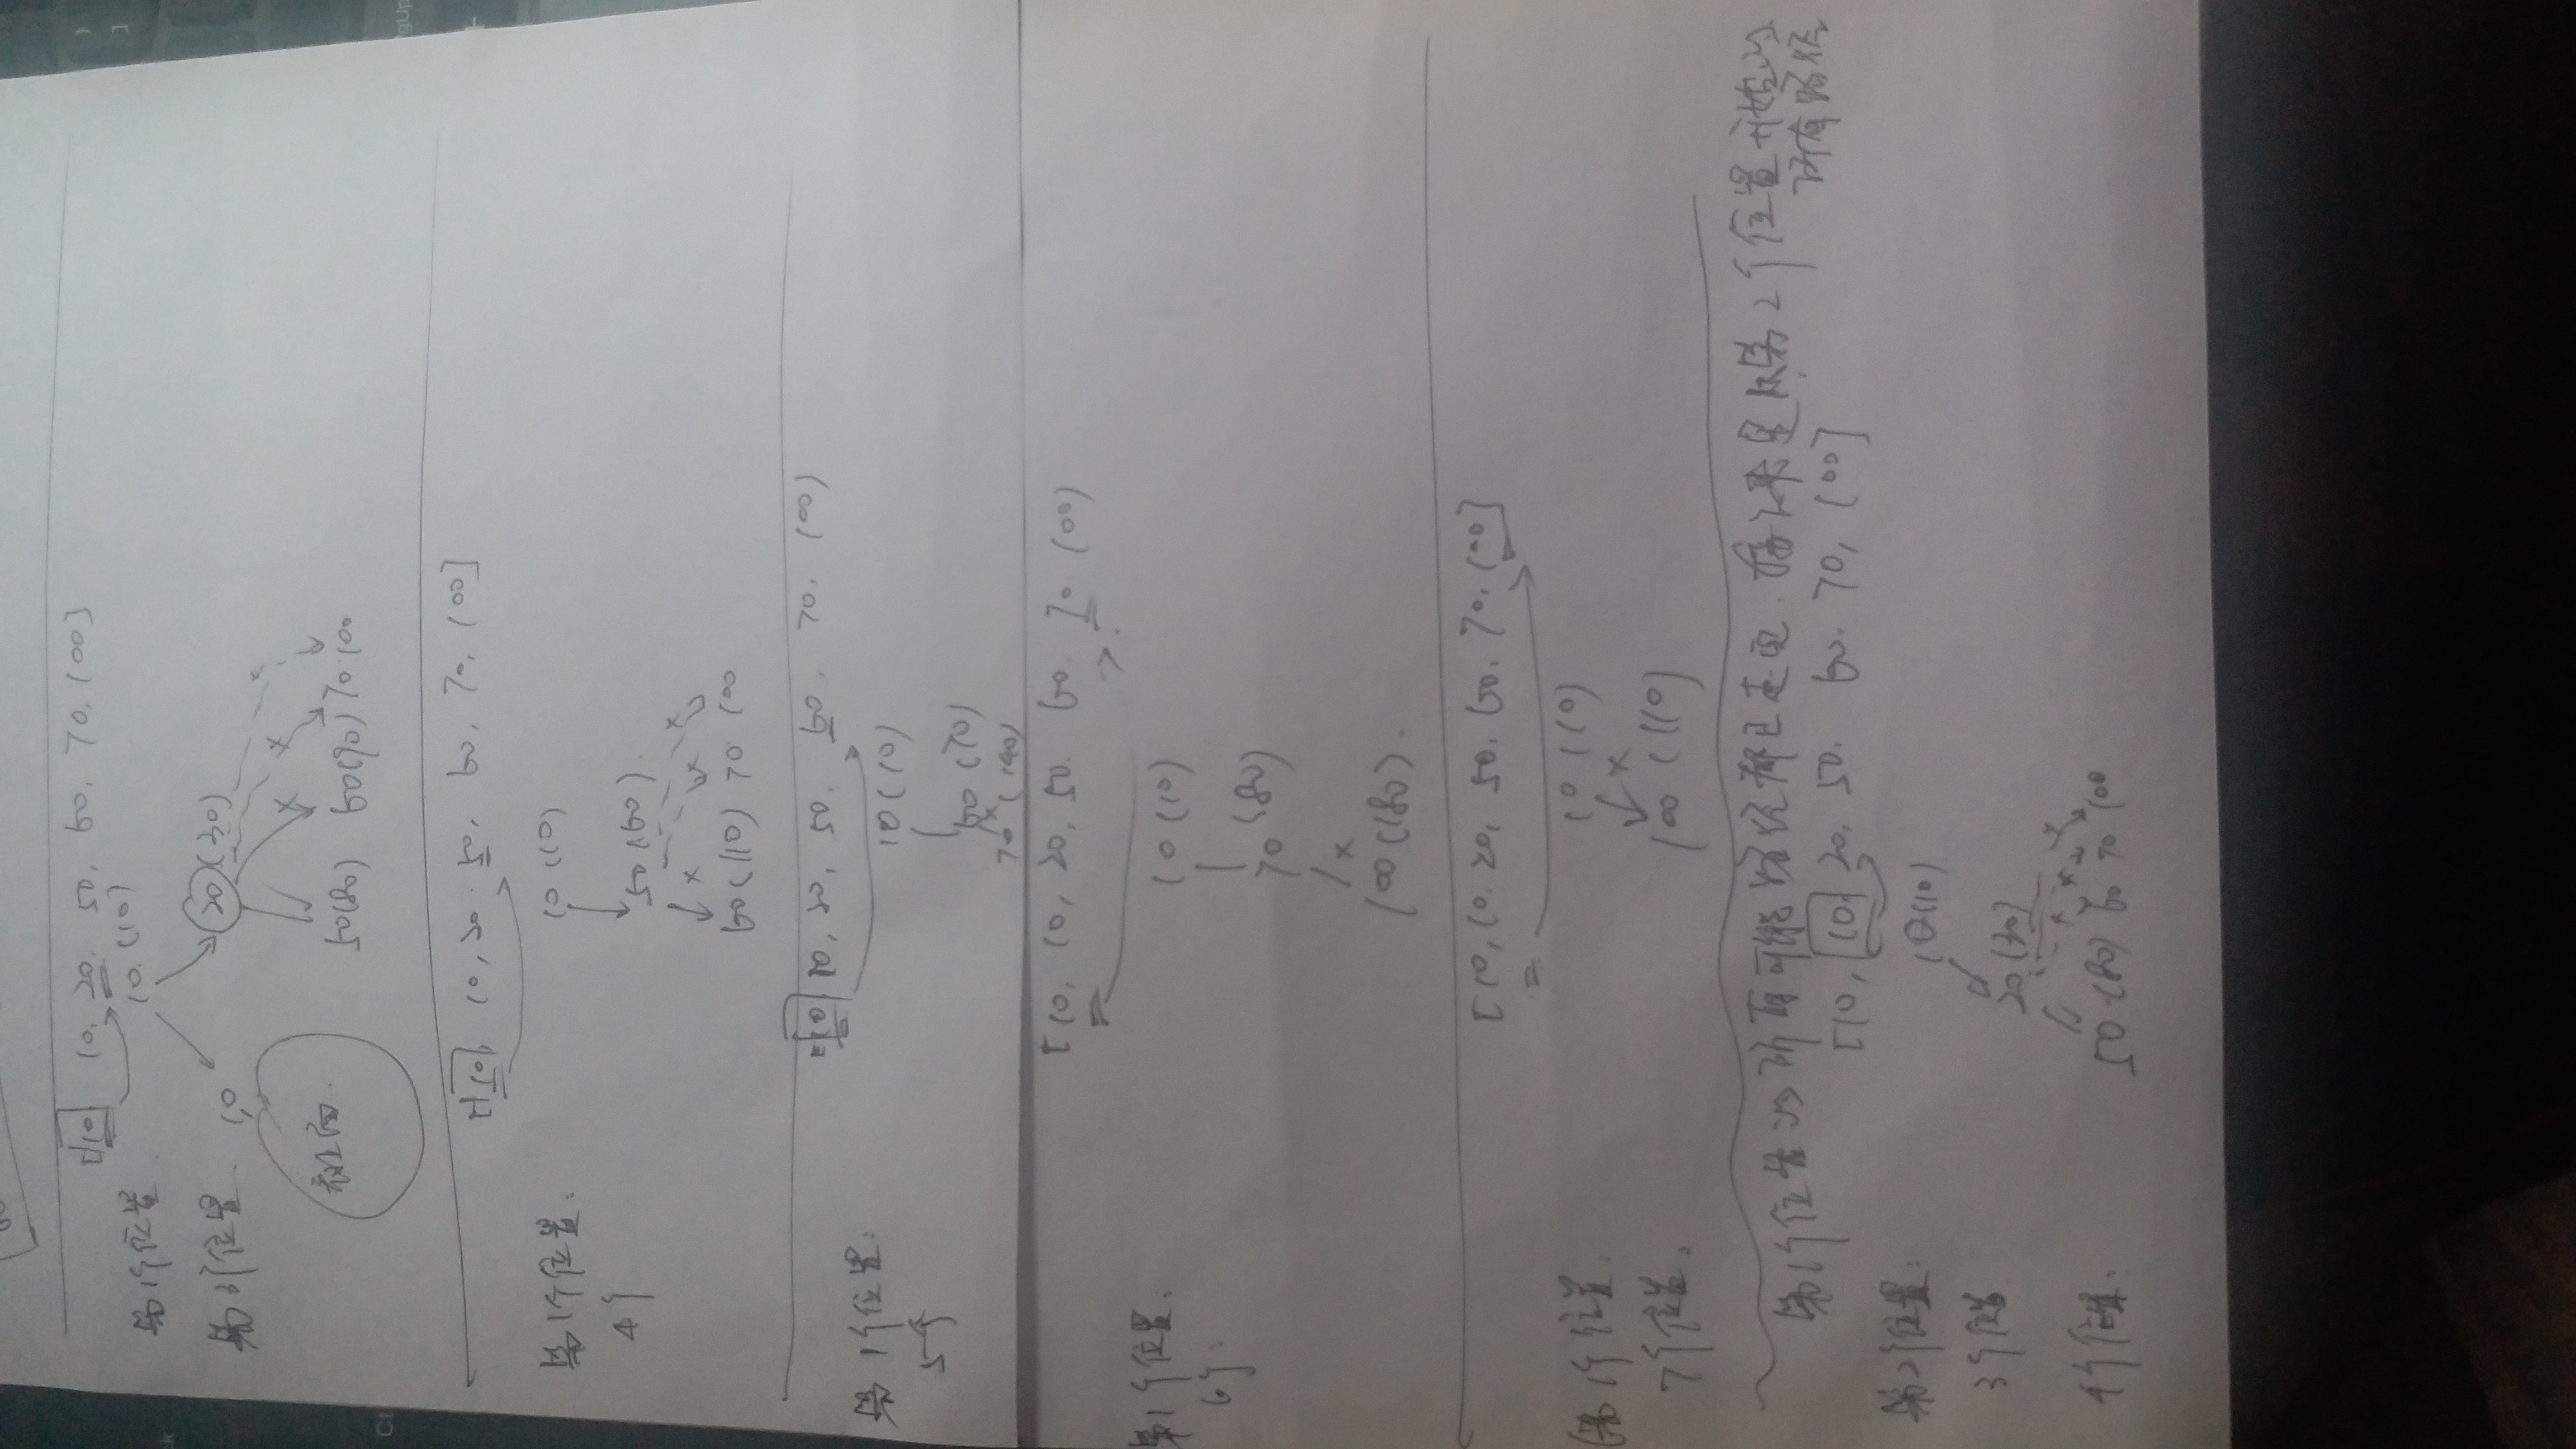 [10, 10, 20, 50, 60, 70, 100]
第1个位置
10 (10)
第3个位置.
10
20 (30)
50(80) 60(90) 70 100
[10, 10, 20. 50, 60, 70, 100]
第1个位置:
10 (10)
4个
50(60)
60(110) 70 100
[10, 10, 20, 50. 60, 70, 100)
第1个位置:
10(10)
5个
60 (70)
70 (140)
[10, 10, 20, 50. 60. 70 100)
第1个位置.
10 (10)
6个:
70 (80)
100(180).
[10, 10. 20, 50. 60. 70, 100]
第1个位置.
10 (10)
7个位置.
100 (110)
第1个位置的所有可能路径都已走完. 接下来是从第2个位置开始的
所有路径
[10, 10, 20, 50. 60. 70, 100]
第2个位置:
10(10)
3个位置
20 (30)
4个位置:
50 (80) 60 70 100